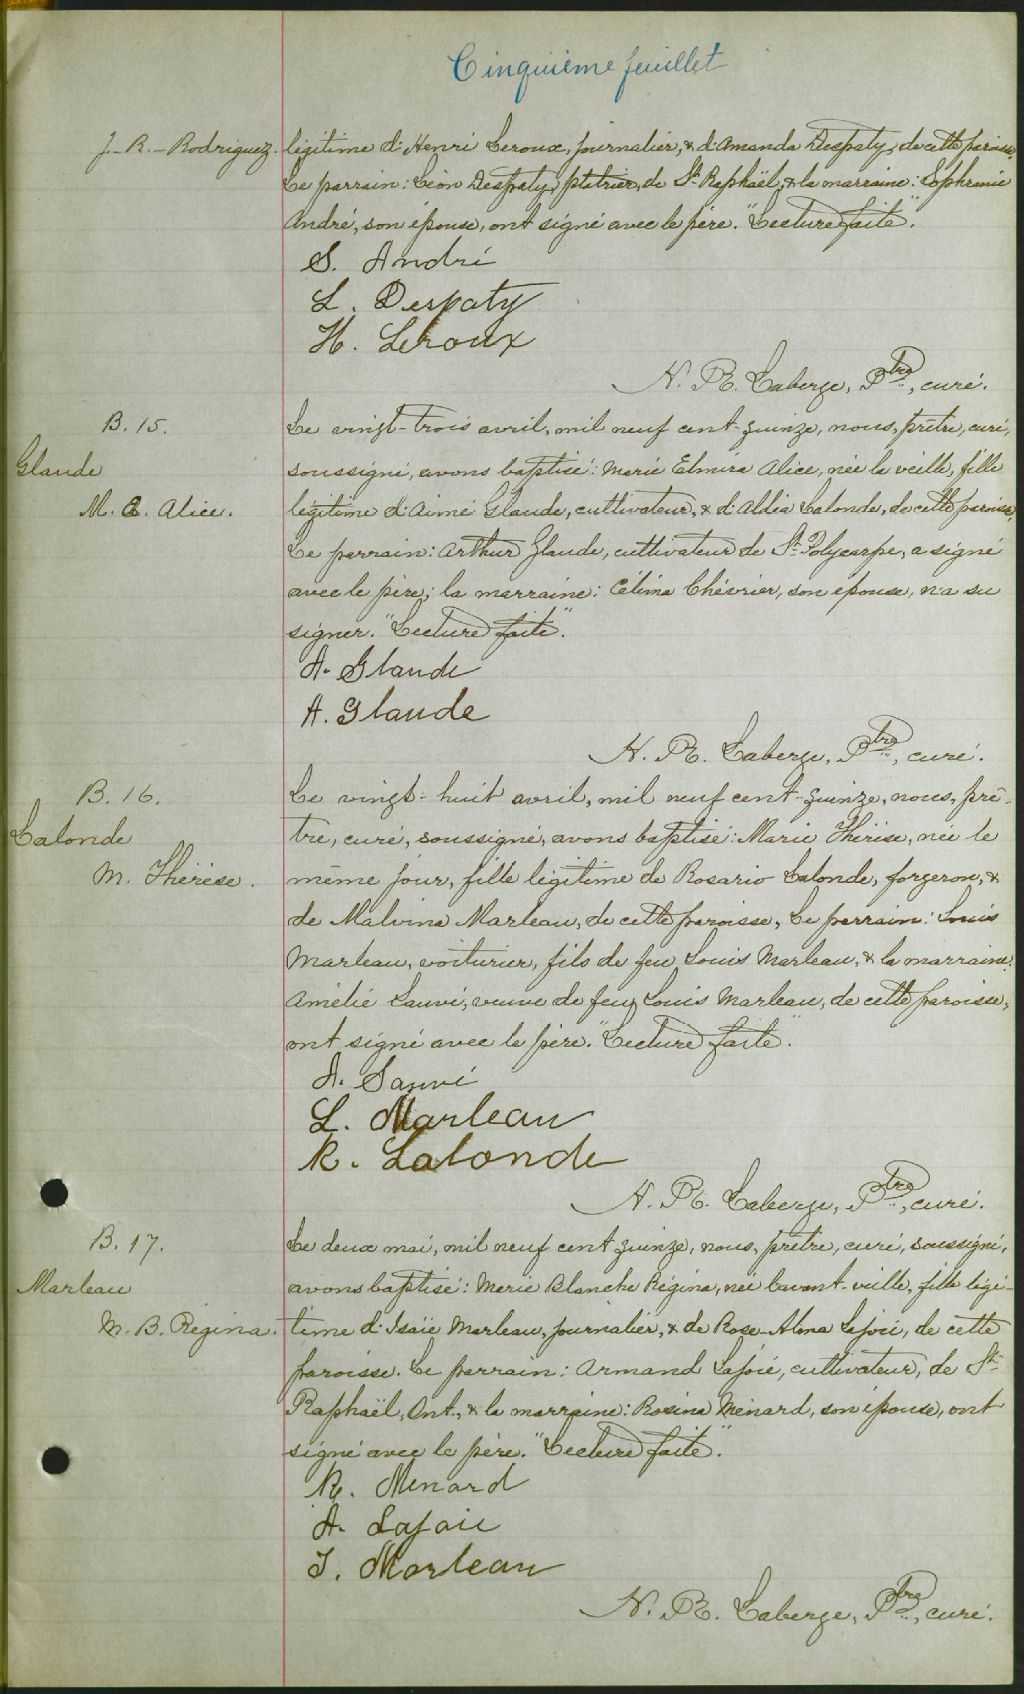 Cinquième feuillet
J.-R.-Rodriguez. légitime d'Henri Leroux, journalier, & d'Amanda Despaty, de cette paroisse.
Le parrain: Léon Despaty, plâtrier, de St-Raphaël, & la marraine: Sophronie
André, son épouse, ont signé avec le père. "Lecture faite".
S. André
L. Despaty
H. Leroux
N. R. Laberge, Ptre, curé.
B. 15. Le vingt-trois avril, mil neuf cent-quinze, nous, prêtre, curé,
Glaude soussigné, avons baptisé: Marie Elmira Alice, née la veille, fille
M. E. Alice. légitime d'Aimé Glaude, cultivateur, & d'Aldéa Lalonde, de cette paroisse.
Le parrain: Arthur Glaude, cultivateur de St-Polycarpe, a signé
avec le père; la marraine: Célima Chévrier, son épouse, n'a su
signer. "Lecture faite".
A. Glaude
A. Glaude
N. R. Laberge, Ptre, curé.
B. 16. Le vingt-huit avril, mil neuf cent-quinze, nous, prê-
Lalonde tre, curé, soussigné, avons baptisé: Marie Thérèse, née le
M. Thérèse. même jour, fille légitime de Rosario Lalonde, forgeron, &
de Malvina Marleau, de cette paroisse, Le parrain: Louis
Marleau, voiturier, fils de feu Louis Marleau, & la marraine:
Amélie Sauvé, veuve de feu Louis Marleau, de cette paroisse,
ont signé avec le père. "Lecture faite".
A. Sauvé
L. Marleau
R. Lalonde
N. R. Laberge, Ptre, curé.
B. 17. Le deux mai, mil neuf cent quinze, nous, prêtre, curé, soussigné,
Marleau avons baptisé: Marie Blanche Régina, née l'avant-veille, fille légi-
M. B. Régina. time d'Isaïe Marleau, journalier, & de Rose-Alma Lajoie, de cette
paroisse. Le parrain: Armand Lajoie, cultivateur, de St-
Raphaël, Ont., & la marraine: Rosina Ménard, son épouse, ont
signé avec le père. "Lecture faite".
R. Menard
A. Lajoie
I. Marleau
N. R. Laberge, Ptre, curé.